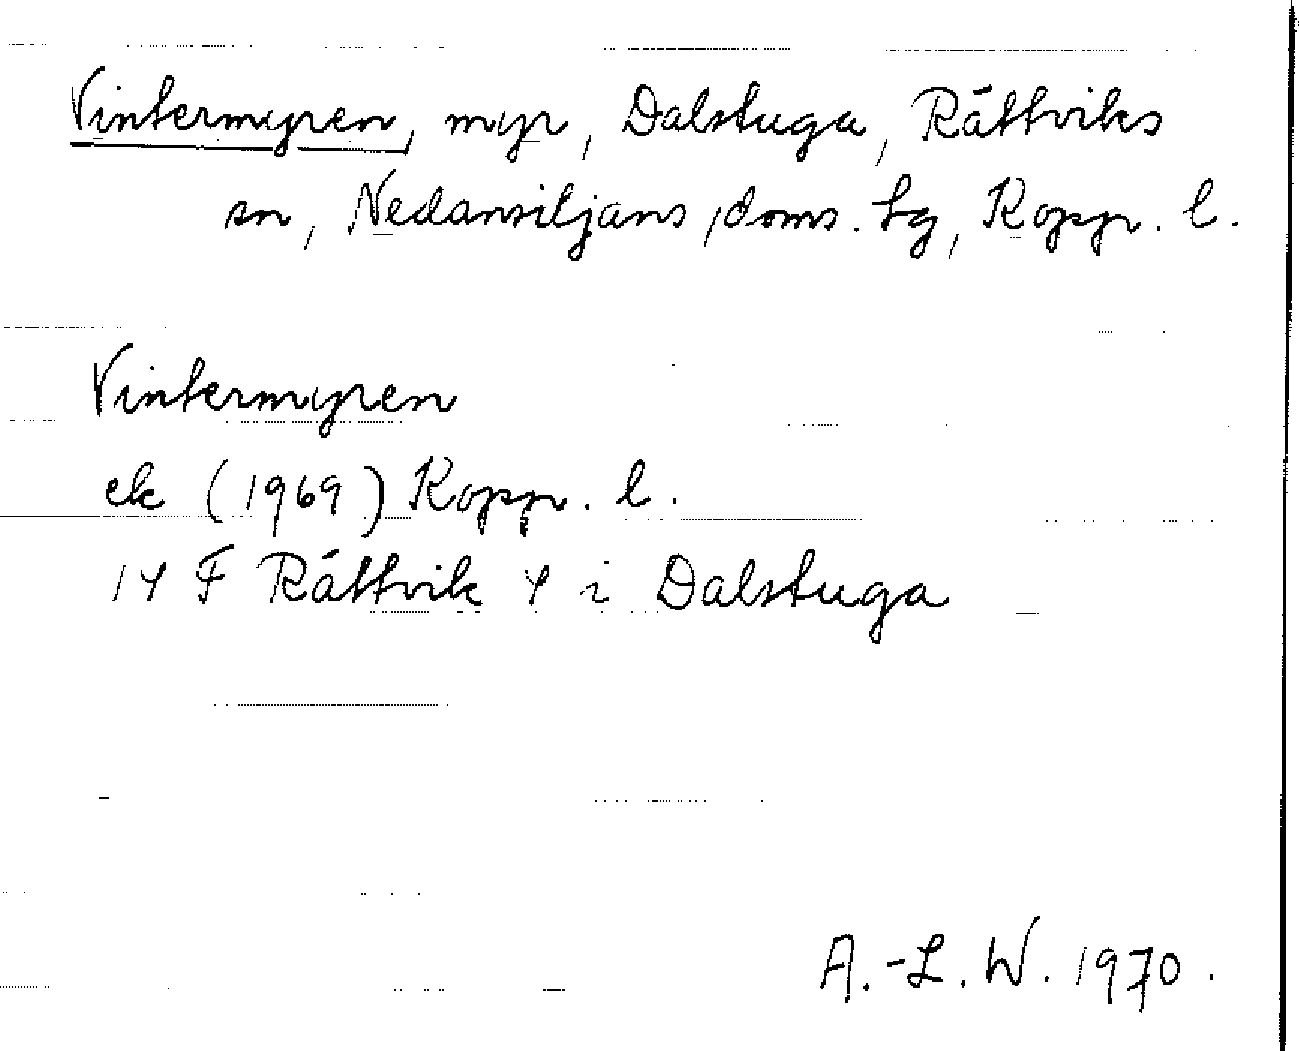 Vintermyren, myr, Dalstuga, Rättviks
sn, Nedansiljans doms. tg, Kopp. l.
Vintermyren
ek (1969) Kopp. l.
14 F Rättvik 4 i Dalstuga
A.-L. W. 1970.